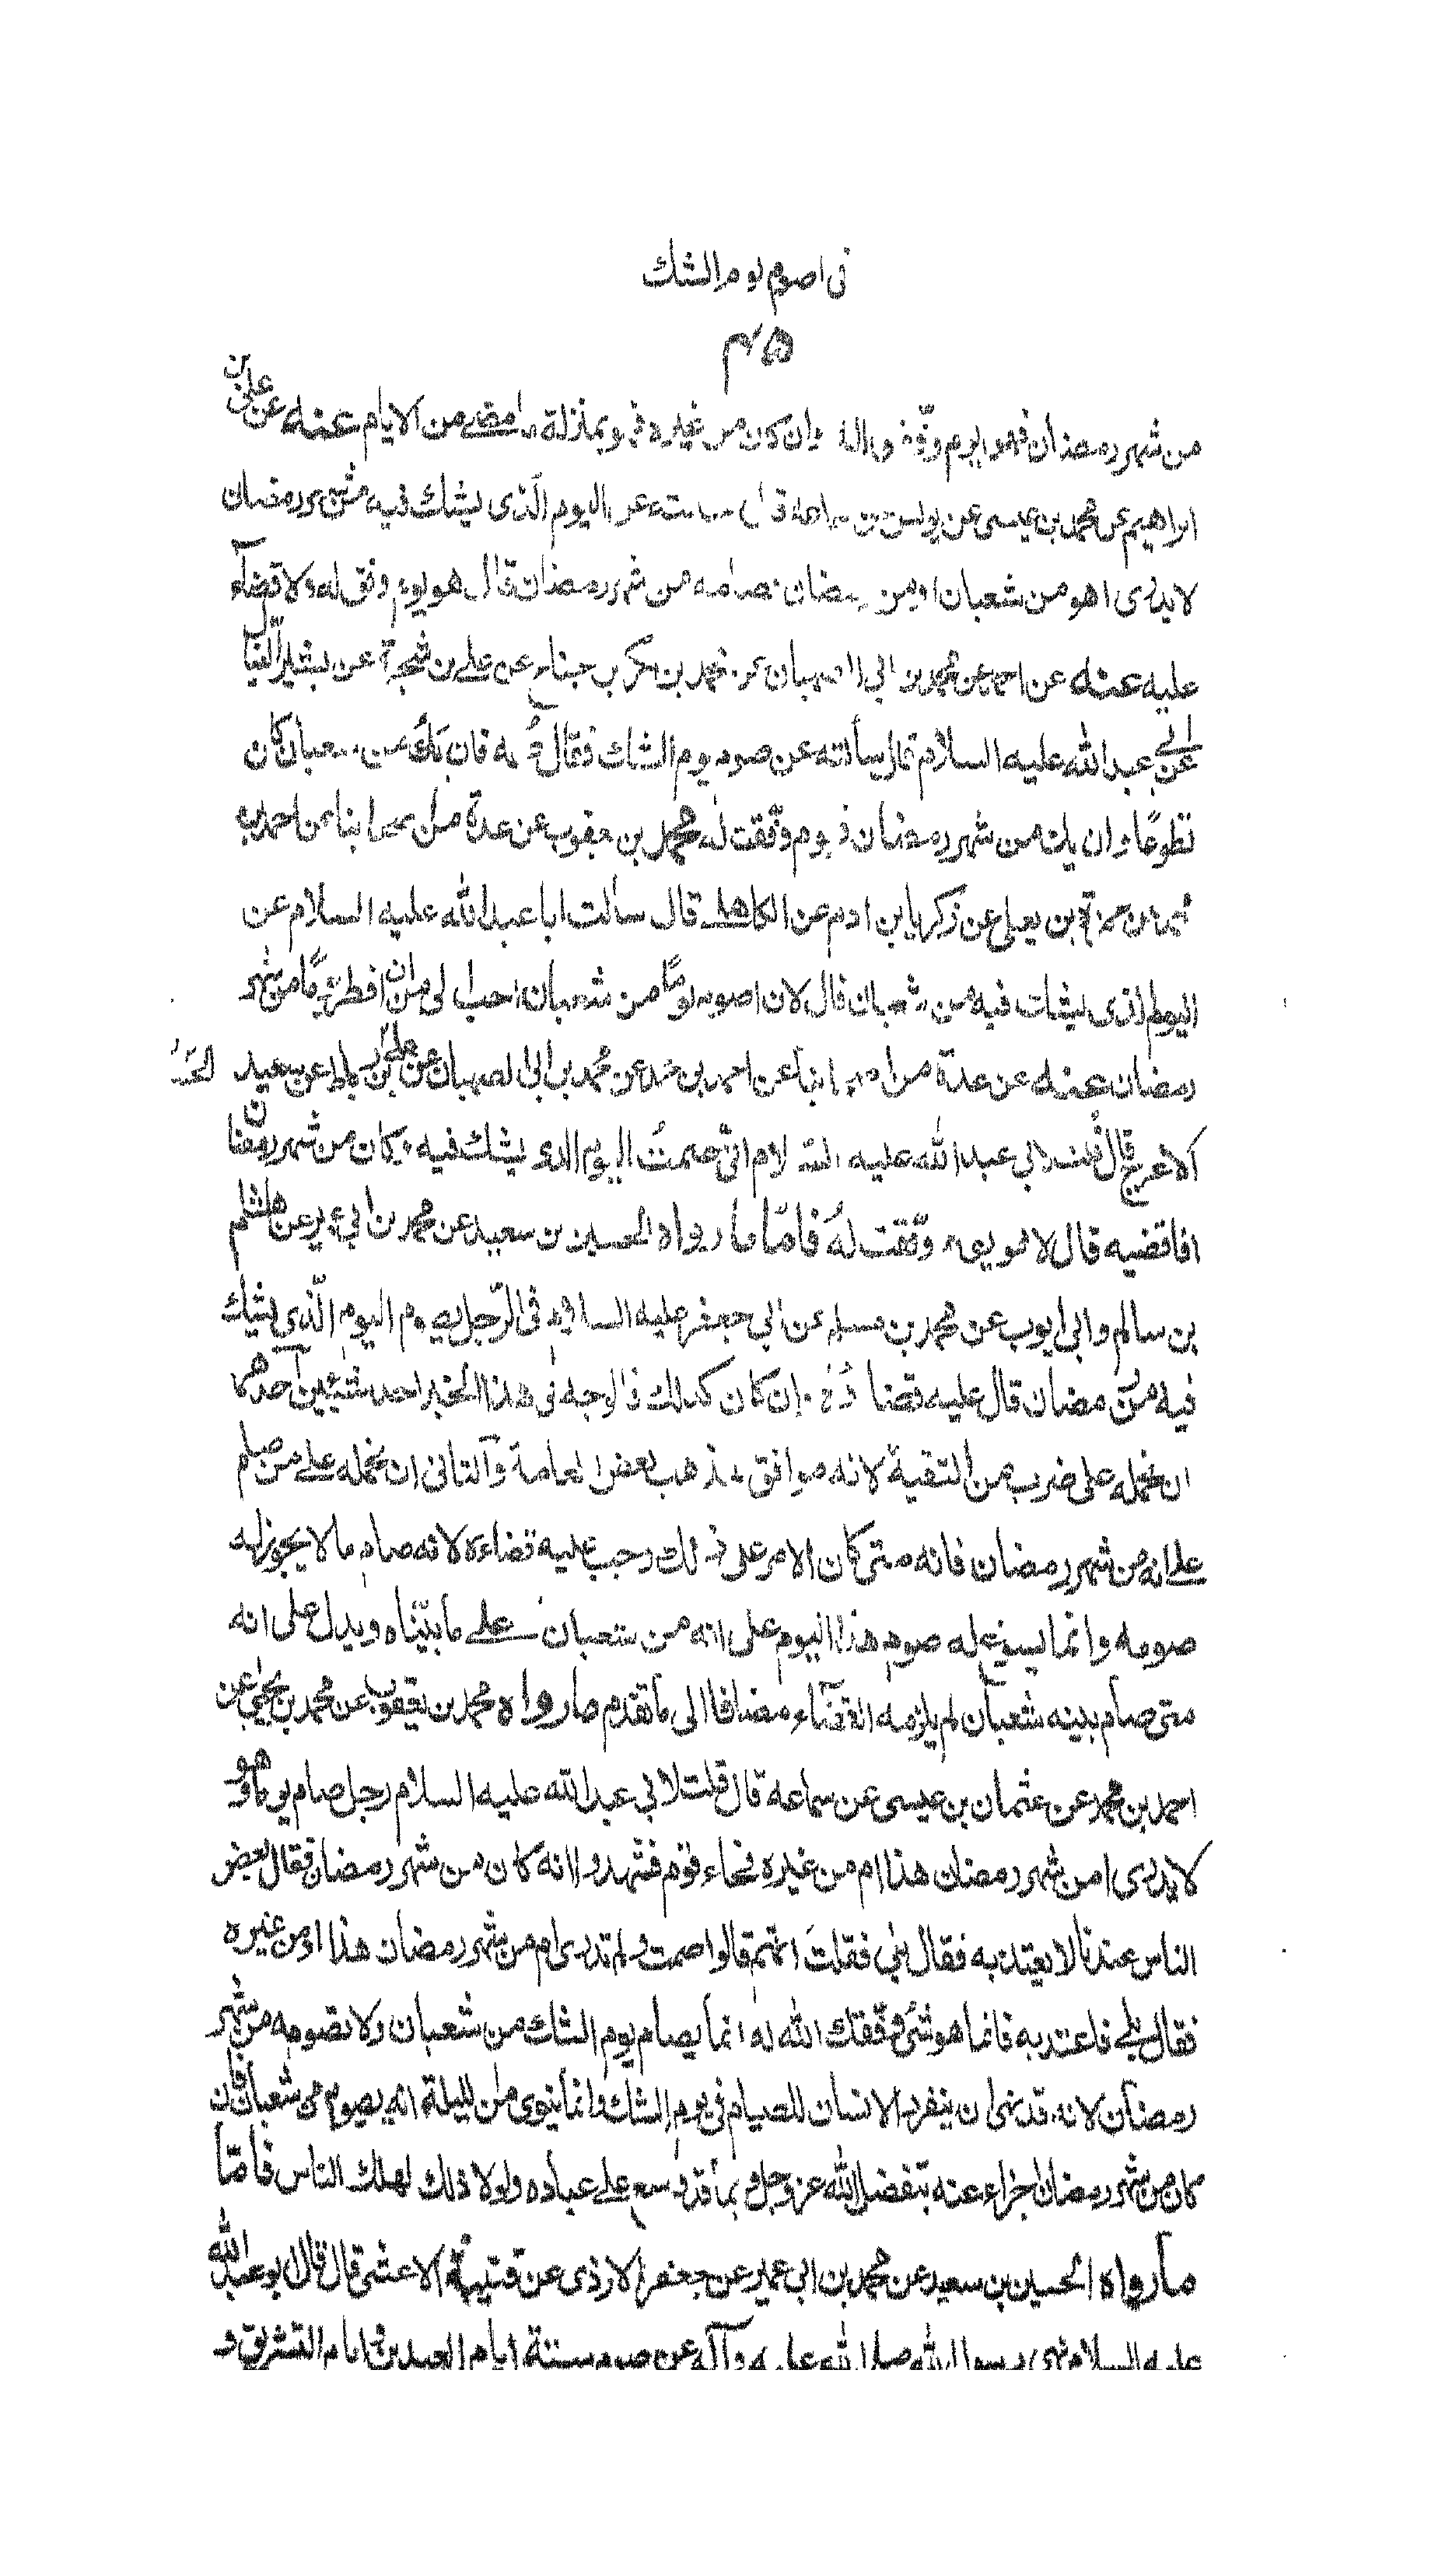 فى صوم يوم الشك
من شهر رمضان فهو يوم وفق له وان كان من غيره فهو بمنزلة ما مضى من الايام عنه عن على بن
ابراهيم عن محمد بن عيسى عن يونس عن سماعة قال سالته عن اليوم الذى يشك فيه من شهر رمضان
لا يدرى اهو من شعبان او من رمضان فصامه من شهر رمضان قال هو يوم وفق له ولا قضاء
عليه عنه عن احمد عن محمد بن ابى الصهبان عن محمد بن بكر بن جناح عن على بن شجرة عن بشير النبال
عن ابى عبد الله عليه السلام قال سألته عن صوم يوم الشك فقال صمه فان يك من شعبان كان
تطوعًا وان يك من شهر رمضان فيوم وفقت له محمد بن يعقوب عن عدة من اصحابنا عن احمد بن
عن حمزة بن يعلى عن زكريا بن ادم عن الكاهلى قال سالت ابا عبد الله عليه السلام عن
اليوم الذى يشك فيه من شعبان قال لان اصوم يومًا من شعبان احب الى من ان افطر يومًا من شهر
رمضان عنه عن عدة من اصحابنا عن احمد بن محمد عن محمد بن ابى الصهبان عن على بن رباط عن سعيد
الاعرج قال قلت لابى عبد الله عليه السلام انى صمت اليوم الذى يشك فيه وكان من شهر رمضان
افاقضيه قال لا هو يوم وفقت له فامّا ما رواه الحسين بن سعيد عن محمد بن ابى عمير عن هشام
بن سالم وابى ايوب عن محمد بن مسلم عن ابى جعفر عليه السلام فى الرّجل يصوم اليوم الّذى يشك
فيه من رمضان قال عليه قضاؤه وان كان كذلك فالوجه فى هذا الخبر احد شيئين احدهما
ان نحمله على ضرب من التقية لانه موافق لمذهب بعض العامة والثانى ان نحمله على من صام
على انه من شهر رمضان فانه متى كان الامر على ذلك وجب عليه قضاءه لانه صام ما لا يجوز له
صومه وانما يسوغ له صوم هذا اليوم على انه من شعبان على ما بيّناه ويدل على انه
متى صام بنيه شعبان لم يلزمه القضاء مضافا الى ما تقدم ما رواه محمد بن يعقوب عن محمد بن يحيى عن
احمد بن محمد عن عثمان بن عيسى عن سماعه قال قلت لابى عبد الله عليه السلام رجل صام يوما وهو
لا يدرى امن شهر رمضان هذا ام من غيره فجاء قوم فشهدوا انه كان من شهر رمضان فقال بعض
الناس عندنا لا يعتد به فقال بلى فقلت انهم قالوا صمت ولم تدرى ام من شهر رمضان هذا او من غيره
فقال بلى فاعتد به فانما هو شئ وفقك الله له انما يصام يوم الشك من شعبان ولا تصومه من شهر
رمضان لانه قد نهى ان ينفرد الانسان للصيام فى يوم الشك وانما ينوى من الليلة انه يصوم من شعبان فان
كان من شهر رمضان اجزاء عنه بتفضل الله عز وجل وبما قد وسع على عباده ولولا ذلك لهلك الناس فامّا
ما رواه الحسين بن سعيد عن محمد بن ابى عمير عن جعفر الازدى عن قتيبة الاعشى قال قال ابو عبد الله
عليه السلام نهى رسول الله صلى الله عليه وآله عن صوم ستة ايام العيدين وايام التشريق و